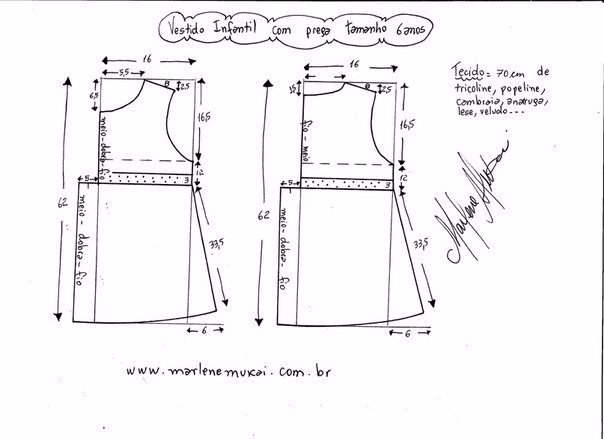 Vestido Infantil com prega tamanho 6 anos
Tecido = 70 cm de
tricoline, popeline,
cambraia, anaruga,
lese, veludo...
16
5,5
6,5
2,5
16,5
meio-dobra-fio
12
5
3
62
meio-dobra-fio
33,5
6
16
2,5
16,5
12
5
3
62
meio-dobra-fio
33,5
6
Marlene Mukai
www.marlenemukai.com.br